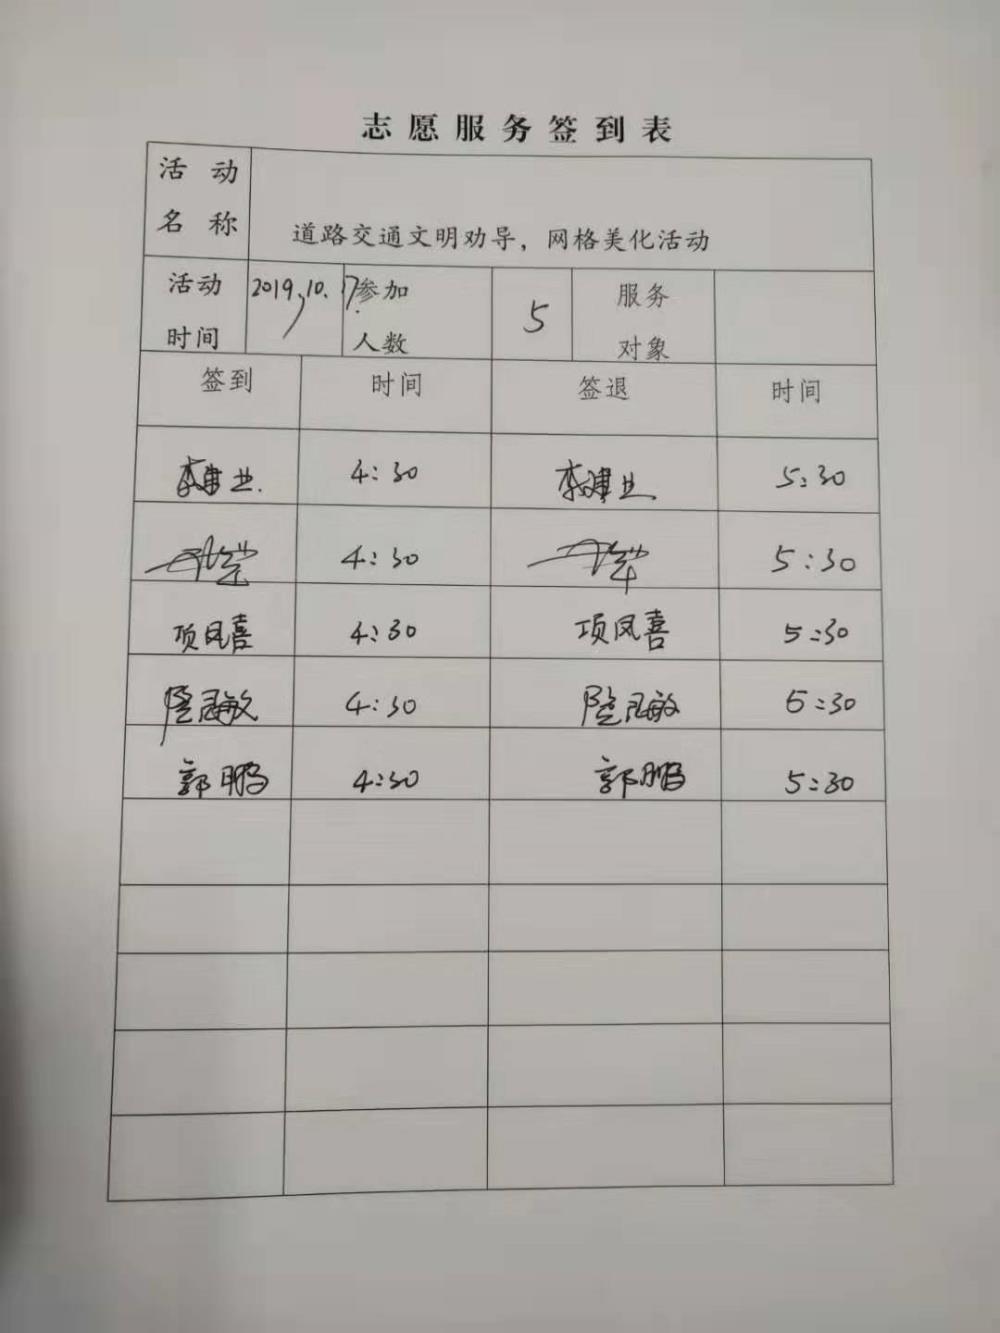 志愿服务签到表
活动名称 道路交通文明劝导，网格美化活动
活动时间 2019,10.17. 参加人数 5 服务对象
签到 时间 签退 时间
李建业. 4:30 李建业 5:30
4:30 5:30
项凤喜 4:30 项凤喜 5:30
4:30 5:30
郭鹏 4:30 郭鹏 5:30